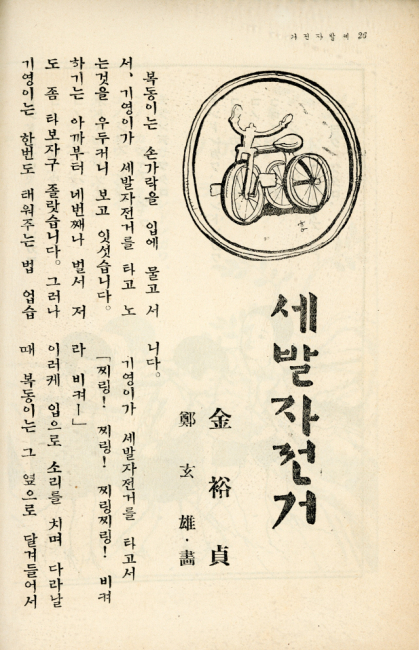 거전자발세 26
세발자전거
金裕貞
鄭玄雄·畵
복동이는 손가락을 입에 물고 서
서, 기영이가 세발자전거를 타고 노
는것을 우두커니 보고 잇섯습니다.
하기는 아까부터 네번째나 벌서 저
도 좀 타보자구 졸랏습니다. 그러나
기영이는 한번도 태워주는 법 업습
니다.
기영이가 세발자전거를 타고서
「찌링! 찌링! 찌링찌링! 비켜
라 비켜ㅡ」
이러케 입으로 소리를 치며 다라날
때 복동이는 그 옆으로 달겨들어서